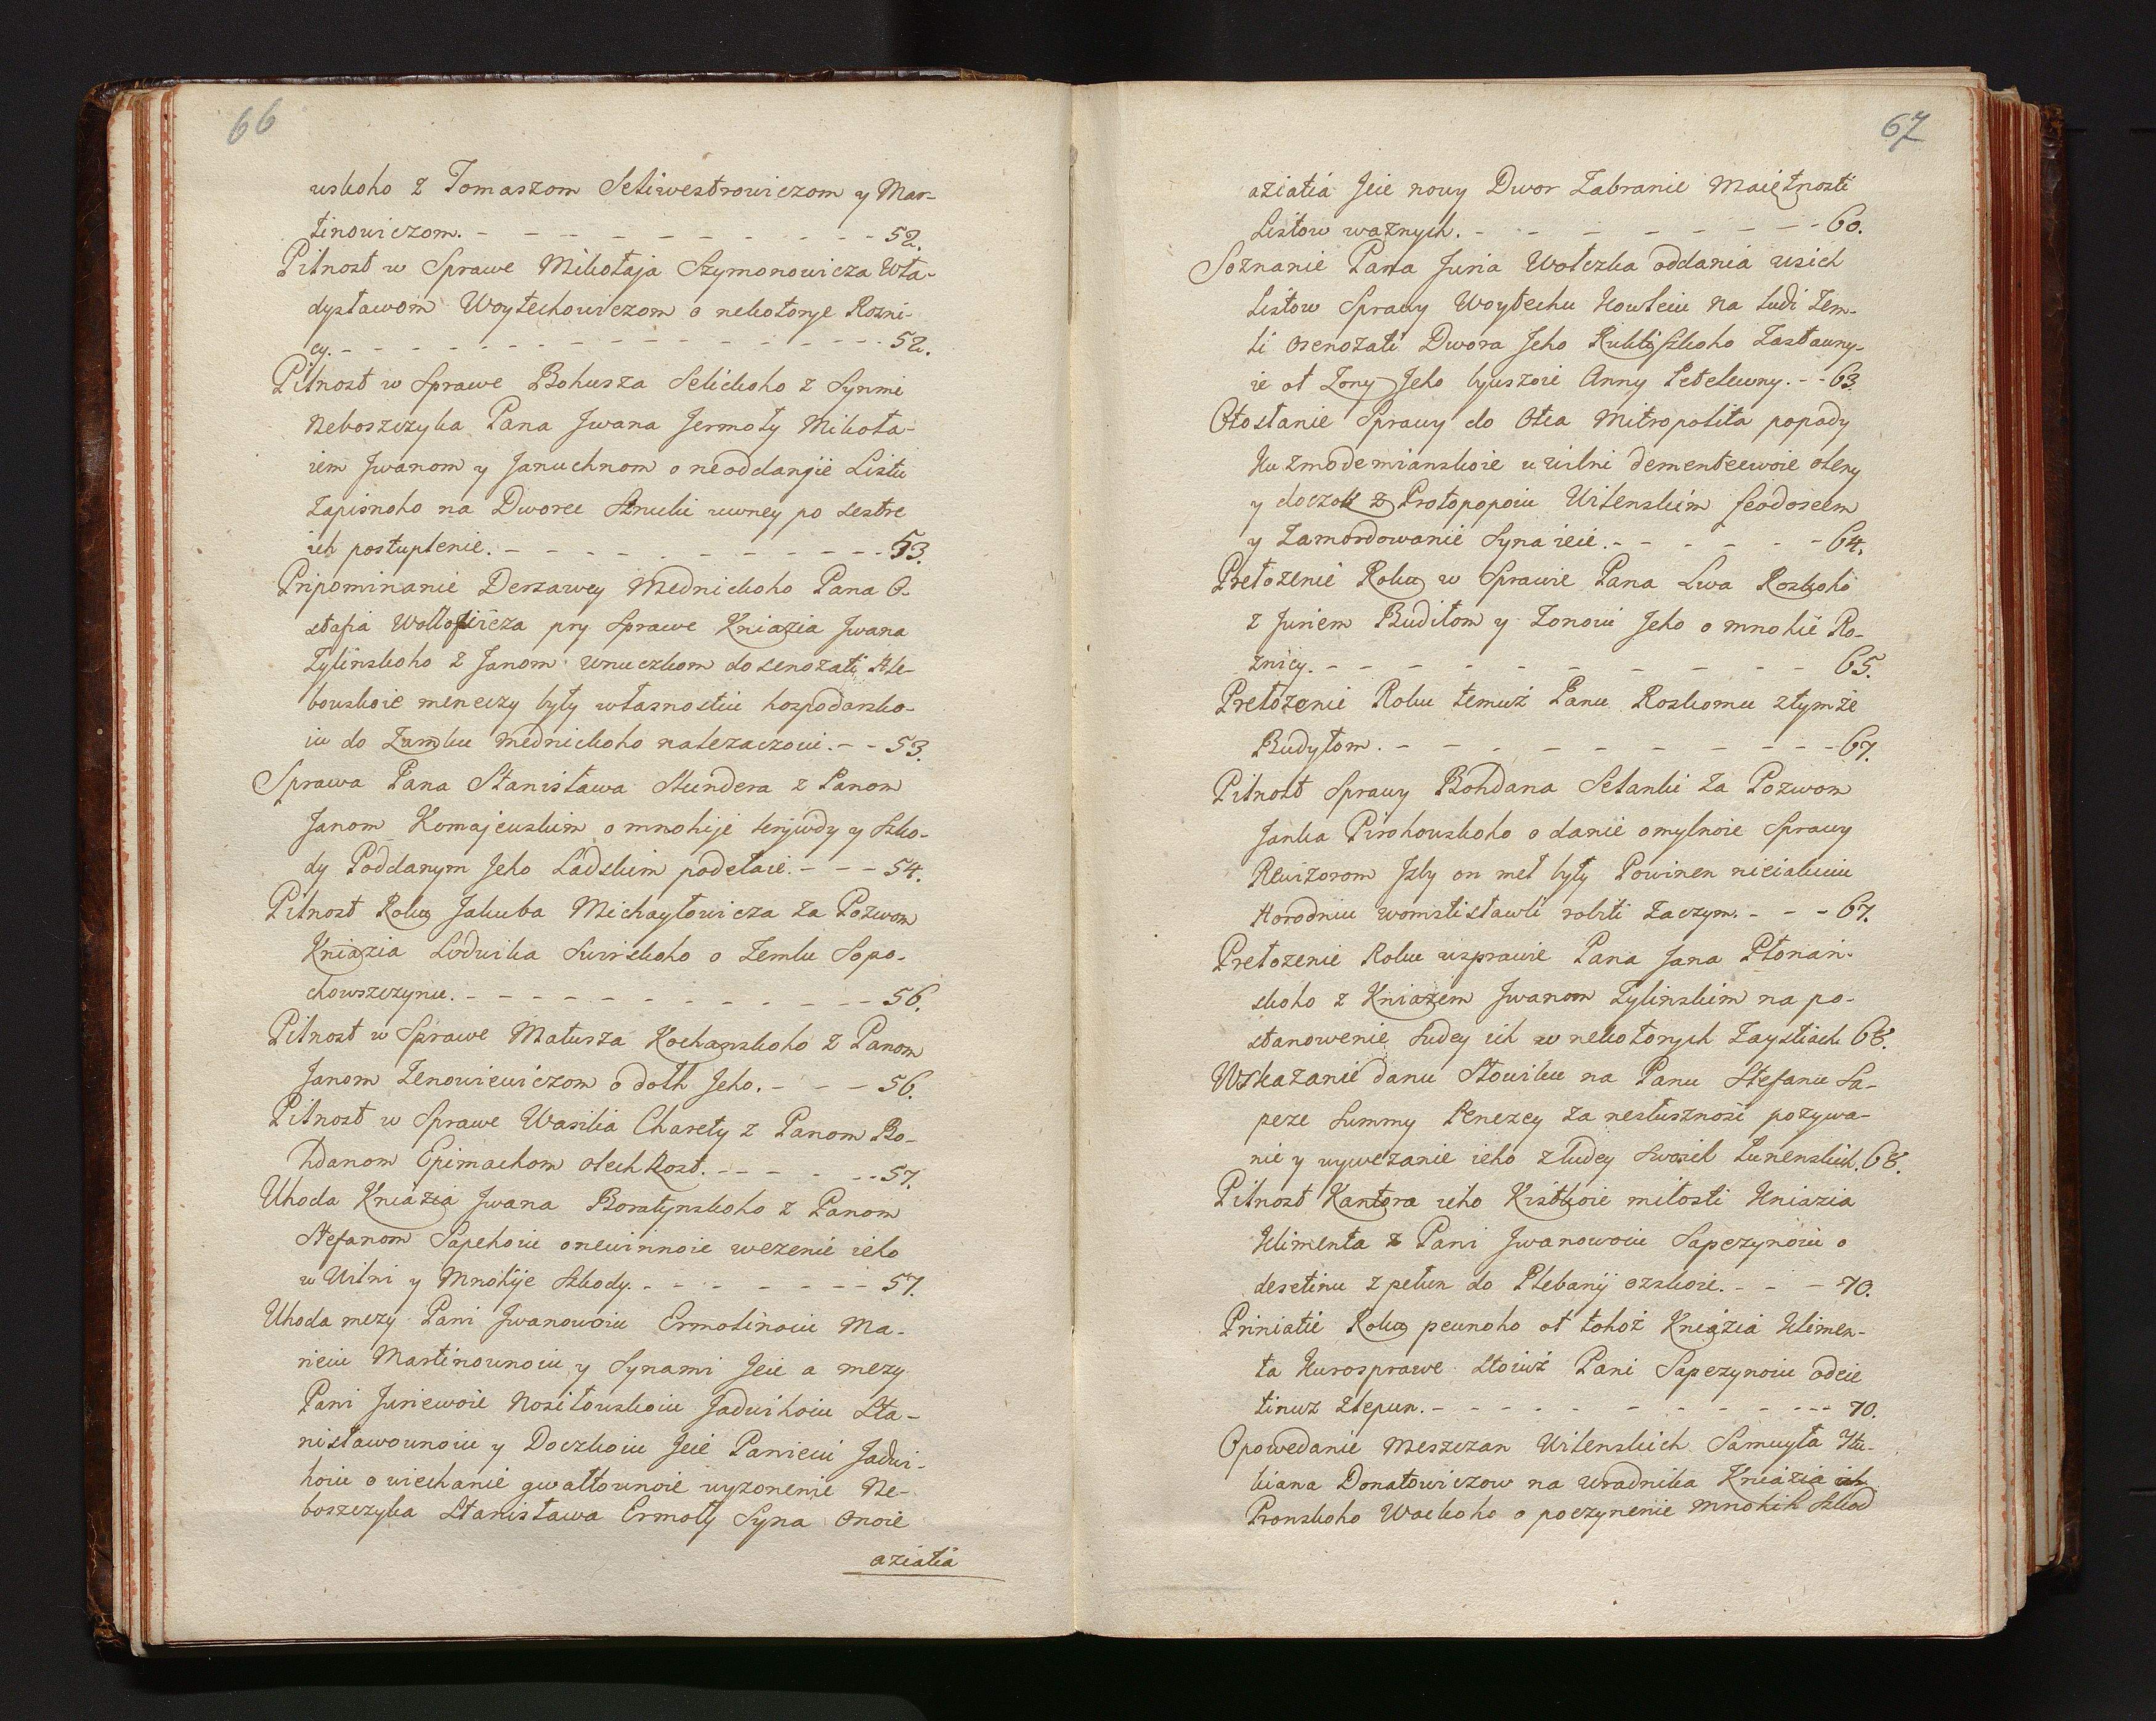 66
uskoho z Tomaszom Seliwestrowiczom y Mar-
tinowiczom. - - - - - - - - - - 52.
Pilnost w Sprawe Mikołaja Szymonowicza Wła-
dysławom Woytechowiczom o nekotorye Rozni-
cy. - - - - - - - - - - - - - - - 52.
Pilnost w Sprawe Bohusza Selickoho z Synmi
Neboszczyka Pana Jwana Jermoły Mikoła-
iem Jwanom y Januchnom o neoddanije Listu
Zapisnoho na Dworec uwney po sestre
ich postuplenie. - - - - - - - - - - 53.
Pripominanie Derzawcy Mednickoho Pana O-
stafia Wołłowicza pry Sprawe Kniazia Jwana
Żylinskoho z Janom Wnuczkom do senozati Hle-
bouskoie meneczy były własnostiu hospodarsko-
iu do Zamku Mednickoho nalezaczoui. - - 53.
Sprawa Pana Stanisława Skindera z Panom
Janom Komajeuskim o mnohije kriwdy y szko-
dy Poddanym Jeho Ladskim podełaie. - - - 54.
Pilnost Roku Jakuba Michayłowicza za Pozwom
Kniazia Lodwika Swirskoho o Zemlu Sopo-
chowszczynu. - - - - - - - - - - - 56.
Pilnost w Sprawe Matusza Kochanskoho z Panom
Janom Zenowiewiczom o dolh Jeho. - - - 56.
Pilnost w Sprawe Wasilia Charety z Panom Bo-
hdanom Epimachom olechkost. - - - - - - 57.
Uhoda Kniazia Jwana Boratynskoho z Panom
Stefanom Sapehoiu onewinnoie wezenie ieho
w Wilni y Mnohije szkody. - - - - - - - - 57.
Uhoda mezy Pani Jwanowoiu Ermolinoiu Ma-
rieiu Martinounoiu y Synami Jeie a mezy
Pani Juriewoie Nositouskoiu Jadwihoiu Sta-
nisławounoiu y Doczkoiu Jeie Panieiu Jadwi-
hoiu o wiechanie gwałtounoie wyzonenie Ne-
boszczyka Stanisława Ermoły Syna Onoie
aziatia
67
aziatiá Jeie nowy Dwor Zabranie Maiętnosti
Listow waznych. - - - - - - - - - 60.
Soznanie Pana Juria Wołczka oddania wsich
Listow Sprawy Woytechu Kowleiu na Ludi Zem-
li Osenozati Dwora Jeho Zastauny-
ie ot Zony Jeho byuszoie Anny Petelewny. - - 63.
Otosłanie Sprawy do Otca Mitropolita popady
Kuzmodemianskoie u Wilni dementeewoie oleny
y doczok z Protopopoiu Wilenskim feodoseem
y Zamordowanie Syna ieie. - - - - - - 64.
Prełozenie Roku w Sprawie Pana Lwa Roskoho
z Juriem Budiłom y Zonoiu Jeho o mnohie Ro-
znicy. - - - - - - - - - - - - 65.
Prełozenie Roku temuż Panu Roskomu ztymże
Budyłom. - - - - - - - - - - - - 67.
Pilnost Sprawy Bohdana Selanki za Pozwom
Janka Pirohouskoho o danie omylnoie Sprawy
Rewizorom Jzby on meł były Powinen nieiakuiu
Horodniu womstisławli robiti Zaczym. - - - 67.
Prełozenie Roku wsprawie Pana Jana Płonan-
skoho z Kniazem Jwanom Żylinskim na po-
stanowenie sudey ich w nekotorych Zaystiach 68.
Wskazanie danu Słowiku na Panu Stefanu Sa-
peze Summy Penezey za nesłusznosi pozywa-
nie y wywezanie ieho z ludey Swoich Lunenskich. 68.
Pilnost Kantora ieho Kristkoie miłosti Kniazia
Klimenta z Pani Jwanowoiu Sapezynoiu o
desetinu z pełun do Plebanij ozskoie. - - - 70.
Priniatie Roku peunoho ot tohoż Kniazia Klimen-
ta Kurosprawe stoiuż Pani Sapezynoiu odeie
tinuz - - - - - - - - - - 70.
Opowedanie Meszczan Wilenskich Samuyła
kiana Donatowiczow na Uradnika Kniazia
Pronskoho Wackoho o poczynenie mnohih szkod